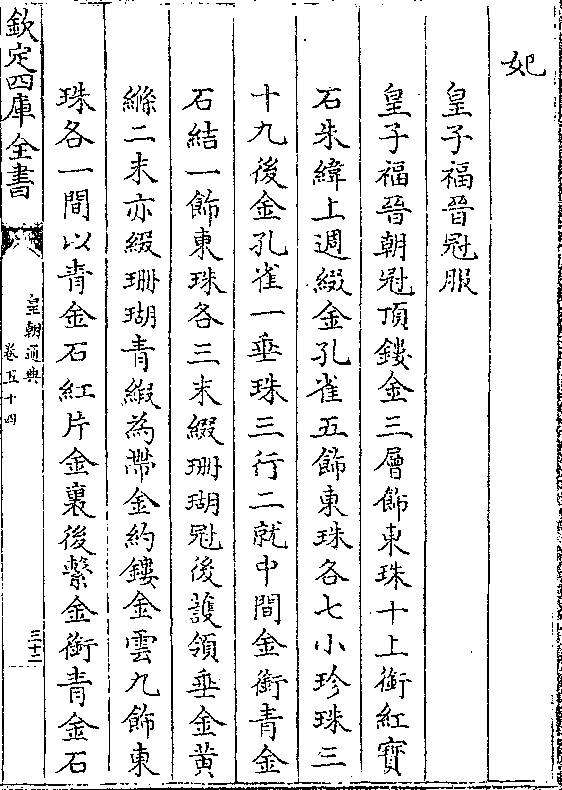 妃
皇子福晉冠服
皇子福晉朝冠頂鏤金三層飾東珠十上銜紅寶
石朱緯上週綴金孔雀五飾東珠各七小珍珠三
十九後金孔雀一垂珠三行二就中間金銜青金
石結一飾東珠各三末綴珊瑚冠後護領垂金黄
絛二末亦綴珊瑚青緞為帶金約鏤金雲九飾東
珠各一間以青金石紅片金裏後繫金銜青金石
欽定四庫全書
皇朝通典
卷五十四
三十二